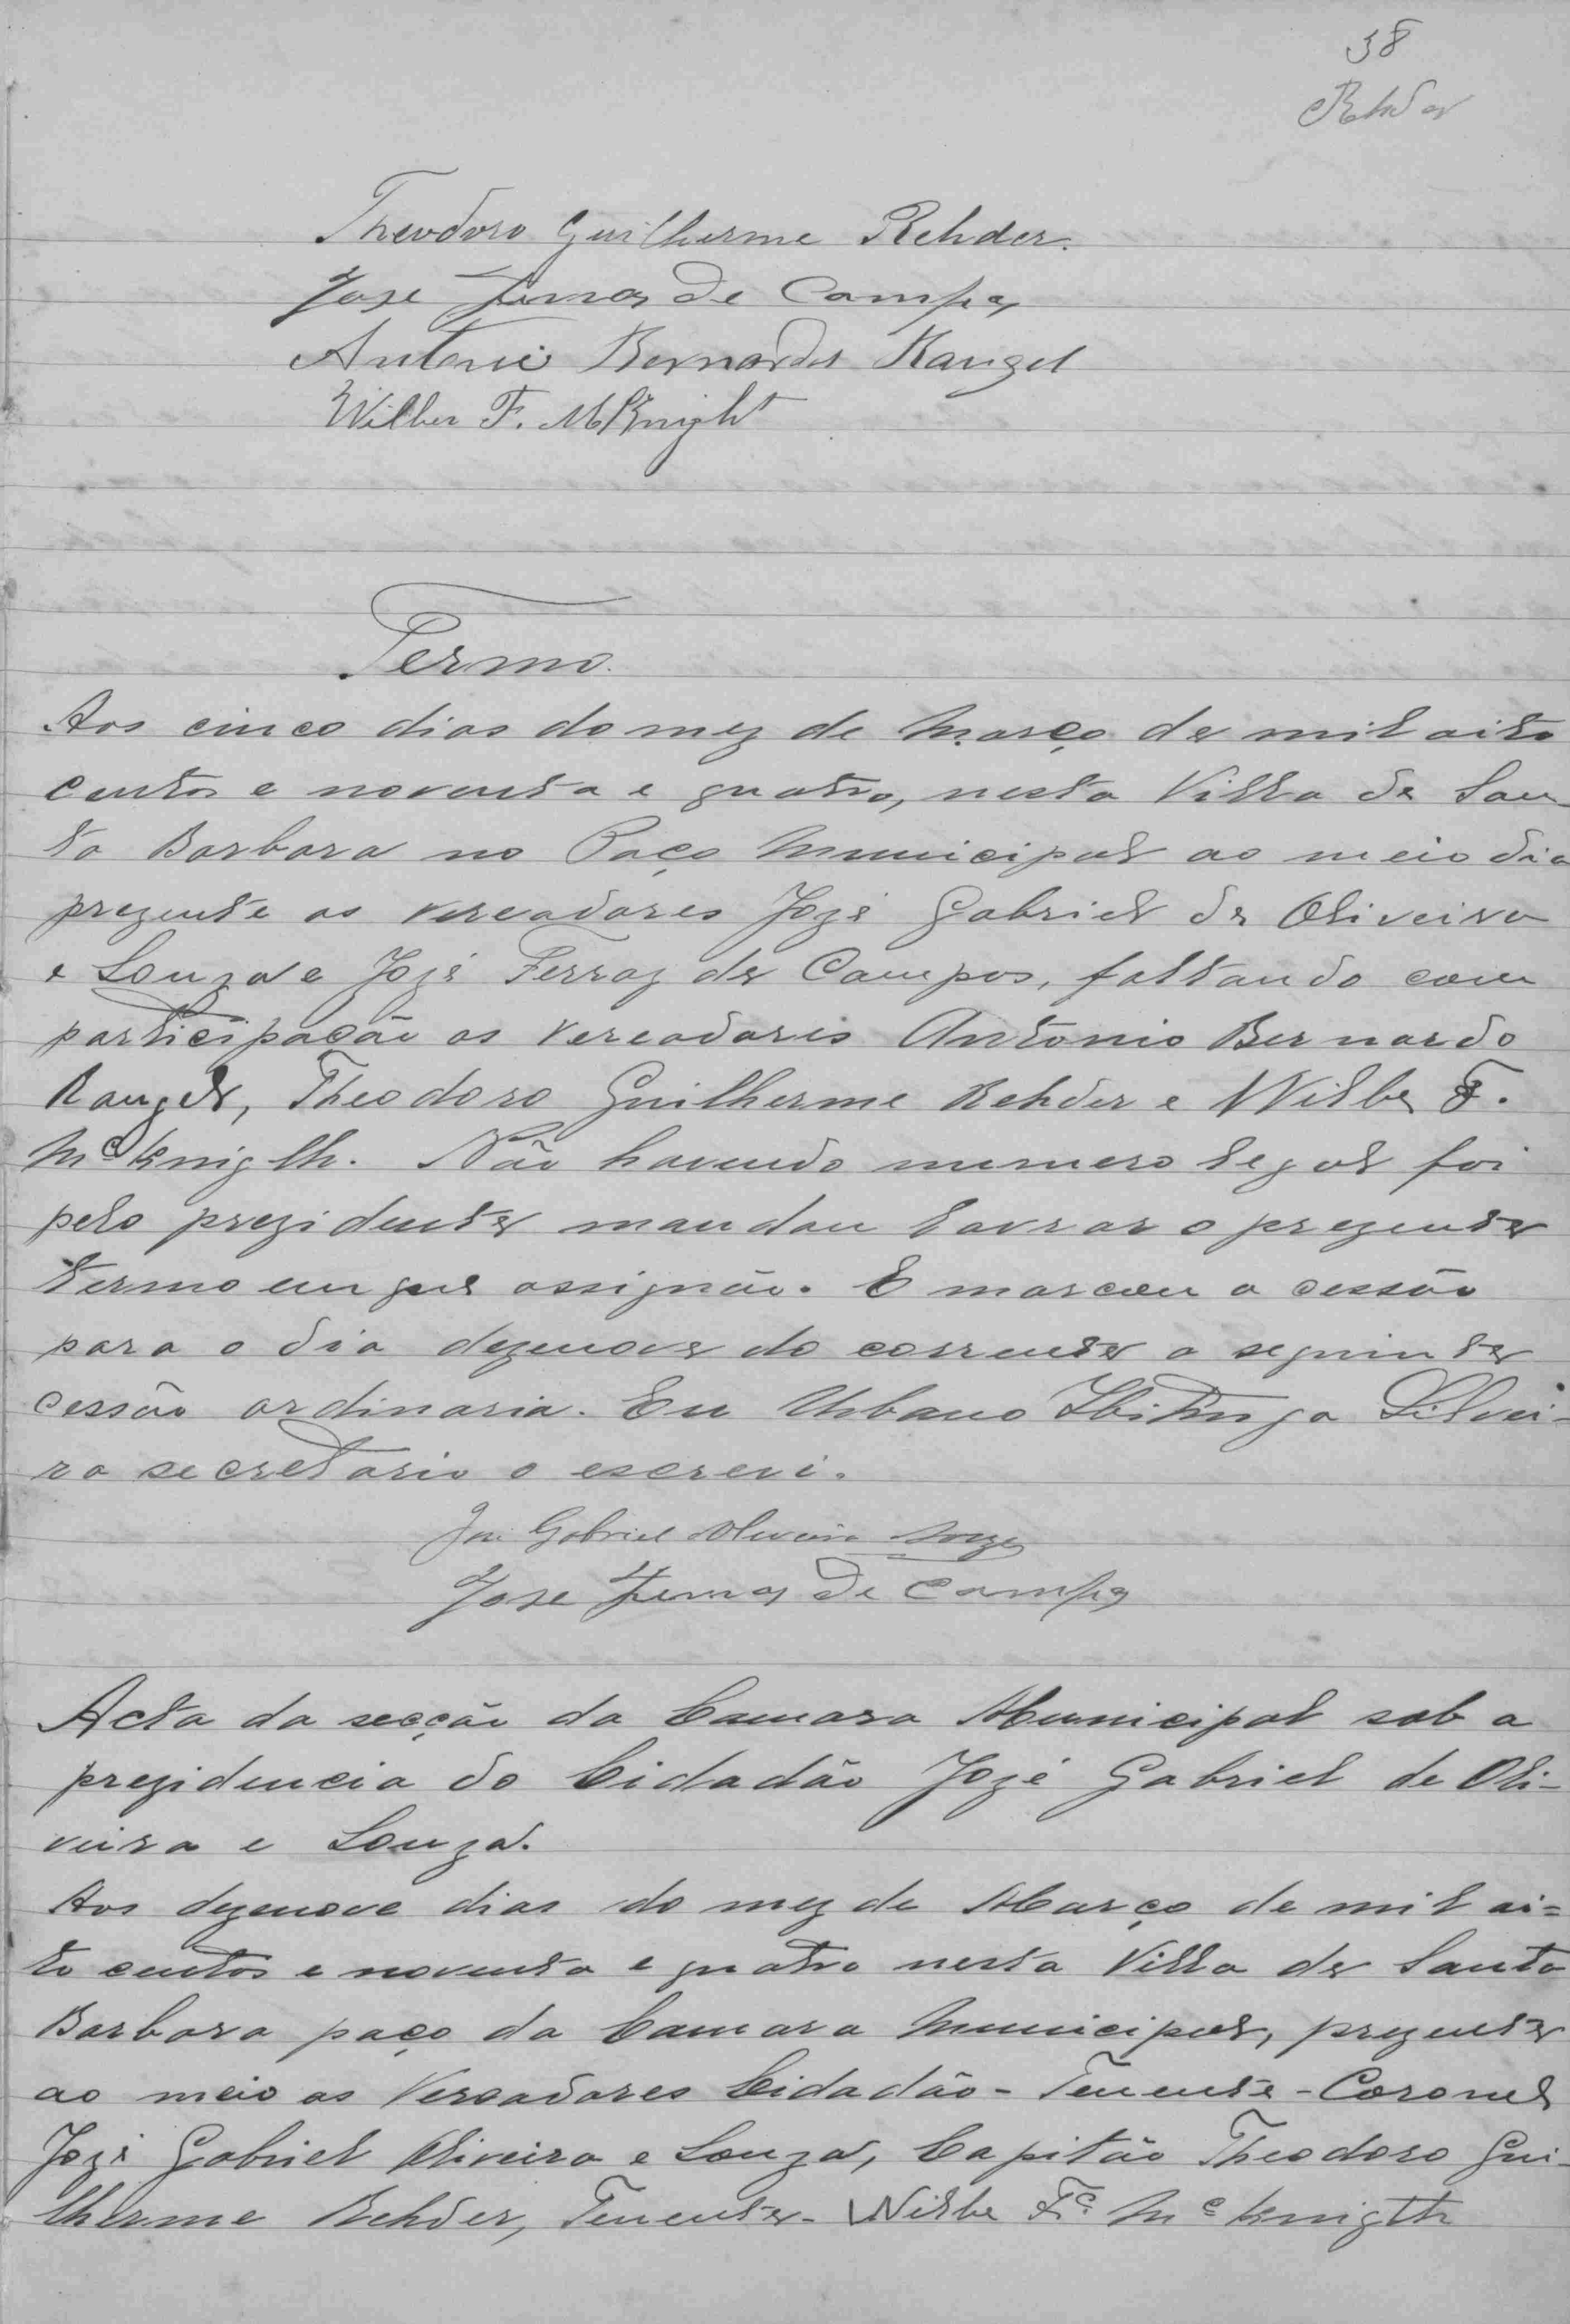 38
Rehder
Theodoro Guilherme Rehder.
Jose Ferraz de Campos
Antonio Bernardo Rangel
Wilber F. McKnight
Termo.
Aos cinco dias do mez de Março de mil oito
centos e noventa e quatro, nesta Villa de San-
ta Barbara no Paço Municipal ao meio dia
prezente os vereadores Jozé Gabriel de Oliveira
e Souza e Jozé Ferraz de Campos, faltando com
participação os vereadores Antonio Bernardo
Rangel, Theodoro Guilherme Rehder e Wilbe F.
Mc Kniglh. Não havendo numero legal foi
pelo prezidente mandou lavrar o prezente
termo em que assignão. E marcou a cessão
para o dia dezenove do corrente a seguinte
cessão ordinaria. Eu Urbano Ibitinga Silvei-
ra secretario o escrevi.
José Gabriel Oliveira Souza
Jose Ferraz de Campos
Acta da secção da Camara Municipal sob a
prezidencia do Cidadão Jozé Gabriel de Oli-
veira e Souza.
Aos dezenove dias do mez de Março de mil oi=
to centos e noventa e quatro nesta Villa de Santa
Barbara paço da Camara Municipal, prezente
ao meio os Vereadores Cidadão - Tenente - Coronel
Jozé Gabriel Oliveira e Souza, Capitão Theodoro Gui-
lherme Rehder, Tenente - Wilbe Fc. Mc Knigth